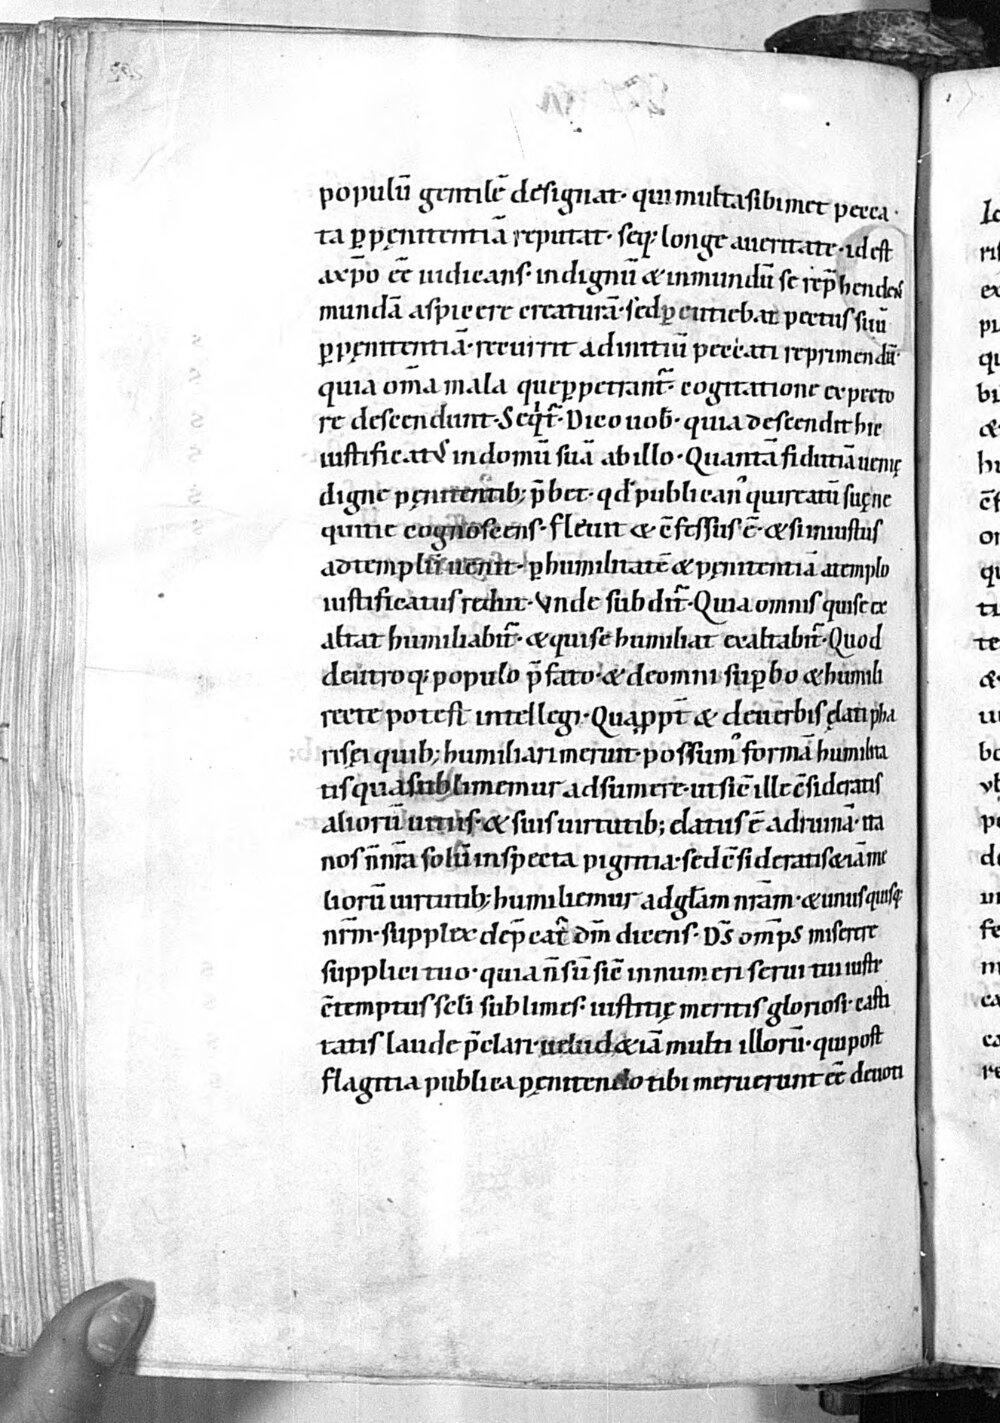 populū gentilē designat· qui multa sibimet pecca·
ta ꝑ pęnitentiā reputat· seq̄· longe a ueritate· id est
a xp̄o eē iudicans· indignū & inmundū se rep̄hendens
mundā aspicere creaturā· sed ꝑcutiebat pectus suū
ꝑ pęnitentiā· recurrit ad initiū peccati reprimendū·
quia om̄a mala que ꝑpetrant̄· cogitatione ex pecto
re descendunt· Seqit̄· Dico uob̄· quia descendit hic
iustificatus in domū suā ab illo· Quantā fidutiā uenię
digne pęnitentib; p̄bet· qd̄ publicanꝰ qui reatū suę ne
quitię cognoscens· fleuit & c̄fessus ē· & si iniustus
ad templū uenit· ꝑ humilitatē & pęnitentiā a templo
iustificatus rediit· Vnde subdit̄· Quia omnis qui se ex
altat humiliabit̄· & qui se humiliat exaltabit̄· Quod
de utroq; populo p̄fato· & de omni suꝑbo & humili
recte potest intellegi· Quappt̄ & de uerbis ęlati pha
risęi quib; humiliari meruit· possumꝰ formā humilita
tis qua sublimemur adsumere· ut sic̄ ille c̄sideratis
aliorū uitiis· & suis uirtutib; elatus ē ad ruinā· ita
nos n̄ nr̄a solū inspecta pigritia· sed c̄sideratis & iā me
liorū uirtutib; humiliemur ad gl̄am nr̄am· & unusquisq;
nr̄m· supplex dep̄cat̄ dm̄ dicens· Ds̄ om̄ps miserere
supplici tuo· quia n̄ sū sic̄ innumeri serui tui iustr
c̄temptus scl̄i sublimes· iustitię meritis gloriosi· casti
tatis laude p̄clari· uelud & iā multi illorū· qui post
flagitia publica pęnitendo tibi meruerunt eē deuoti